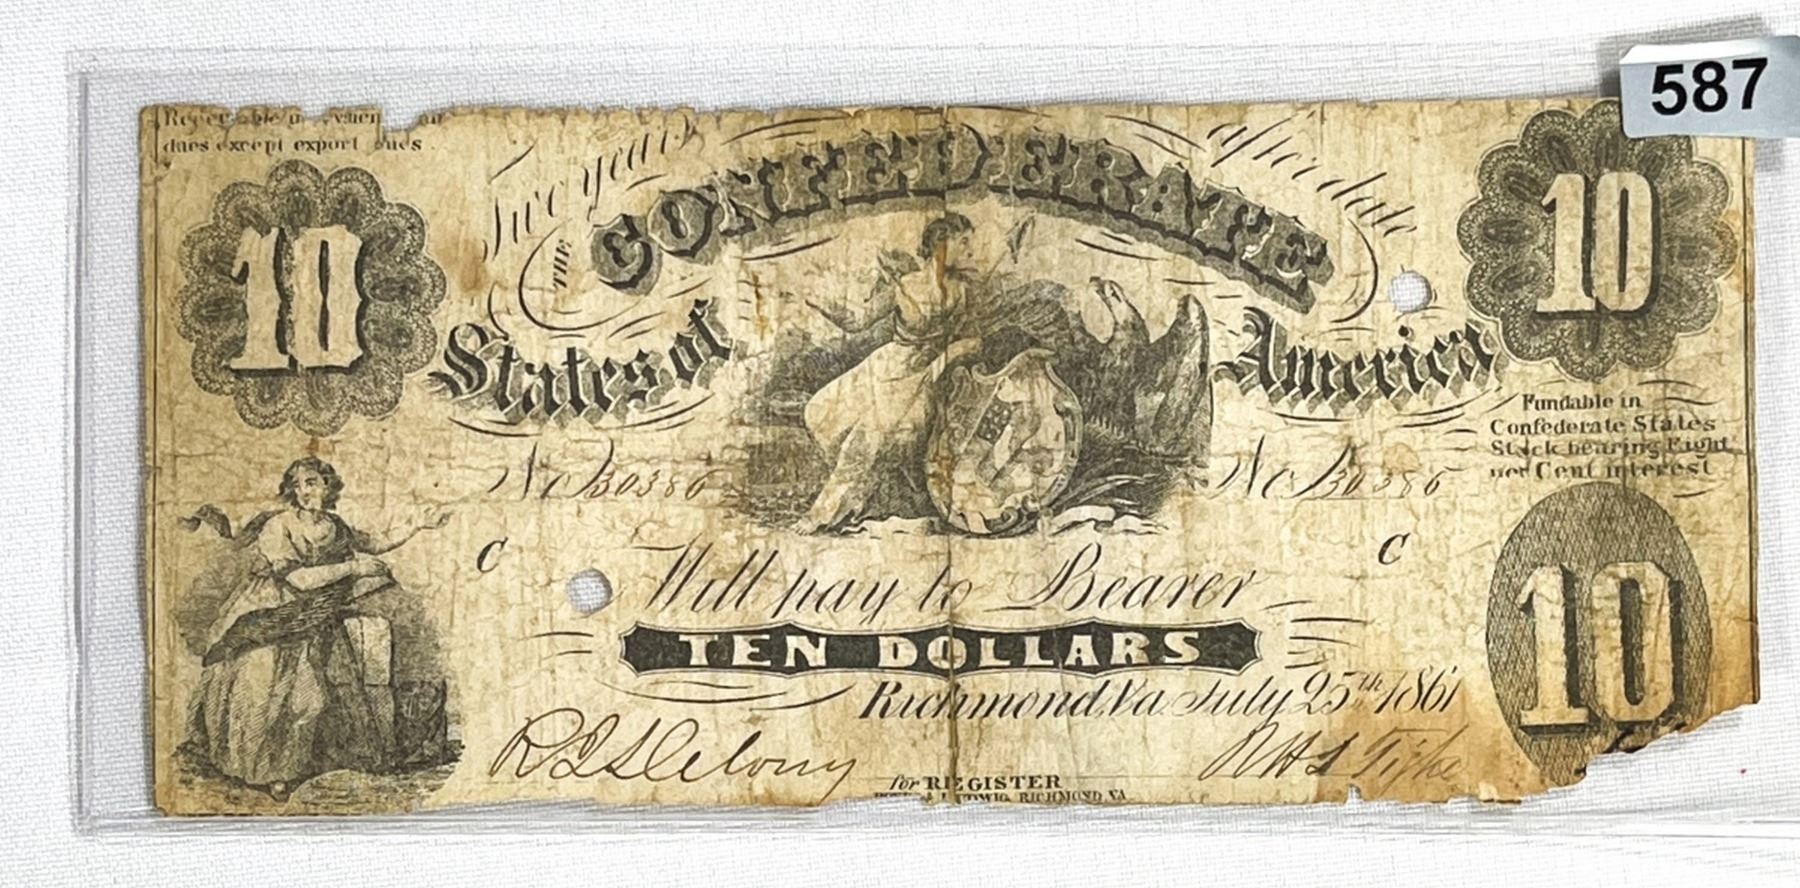 587
dues except export dues
Two years after date
THE CONFEDERATE
States of America
10 10
Fundable in
Confederate States
Stock bearing Eight
per Cent interest
No 30386 No 30386
C C
Will pay to Bearer
TEN DOLLARS
10
Richmond, Va. July 25th 1861
for REGISTER
& LUDWIG, RICHMOND, VA